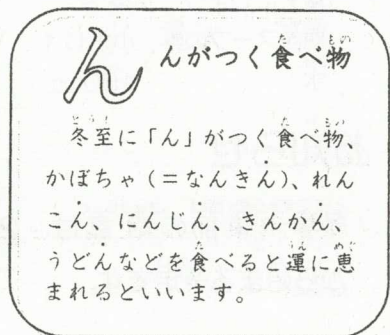 ん
んがつく食べ物
冬至に「ん」がつく食べ物、
かぼちゃ(=なんきん)、れん
こん、にんじん、きんかん、
うどんなどを食べると運に恵
まれるといいます。